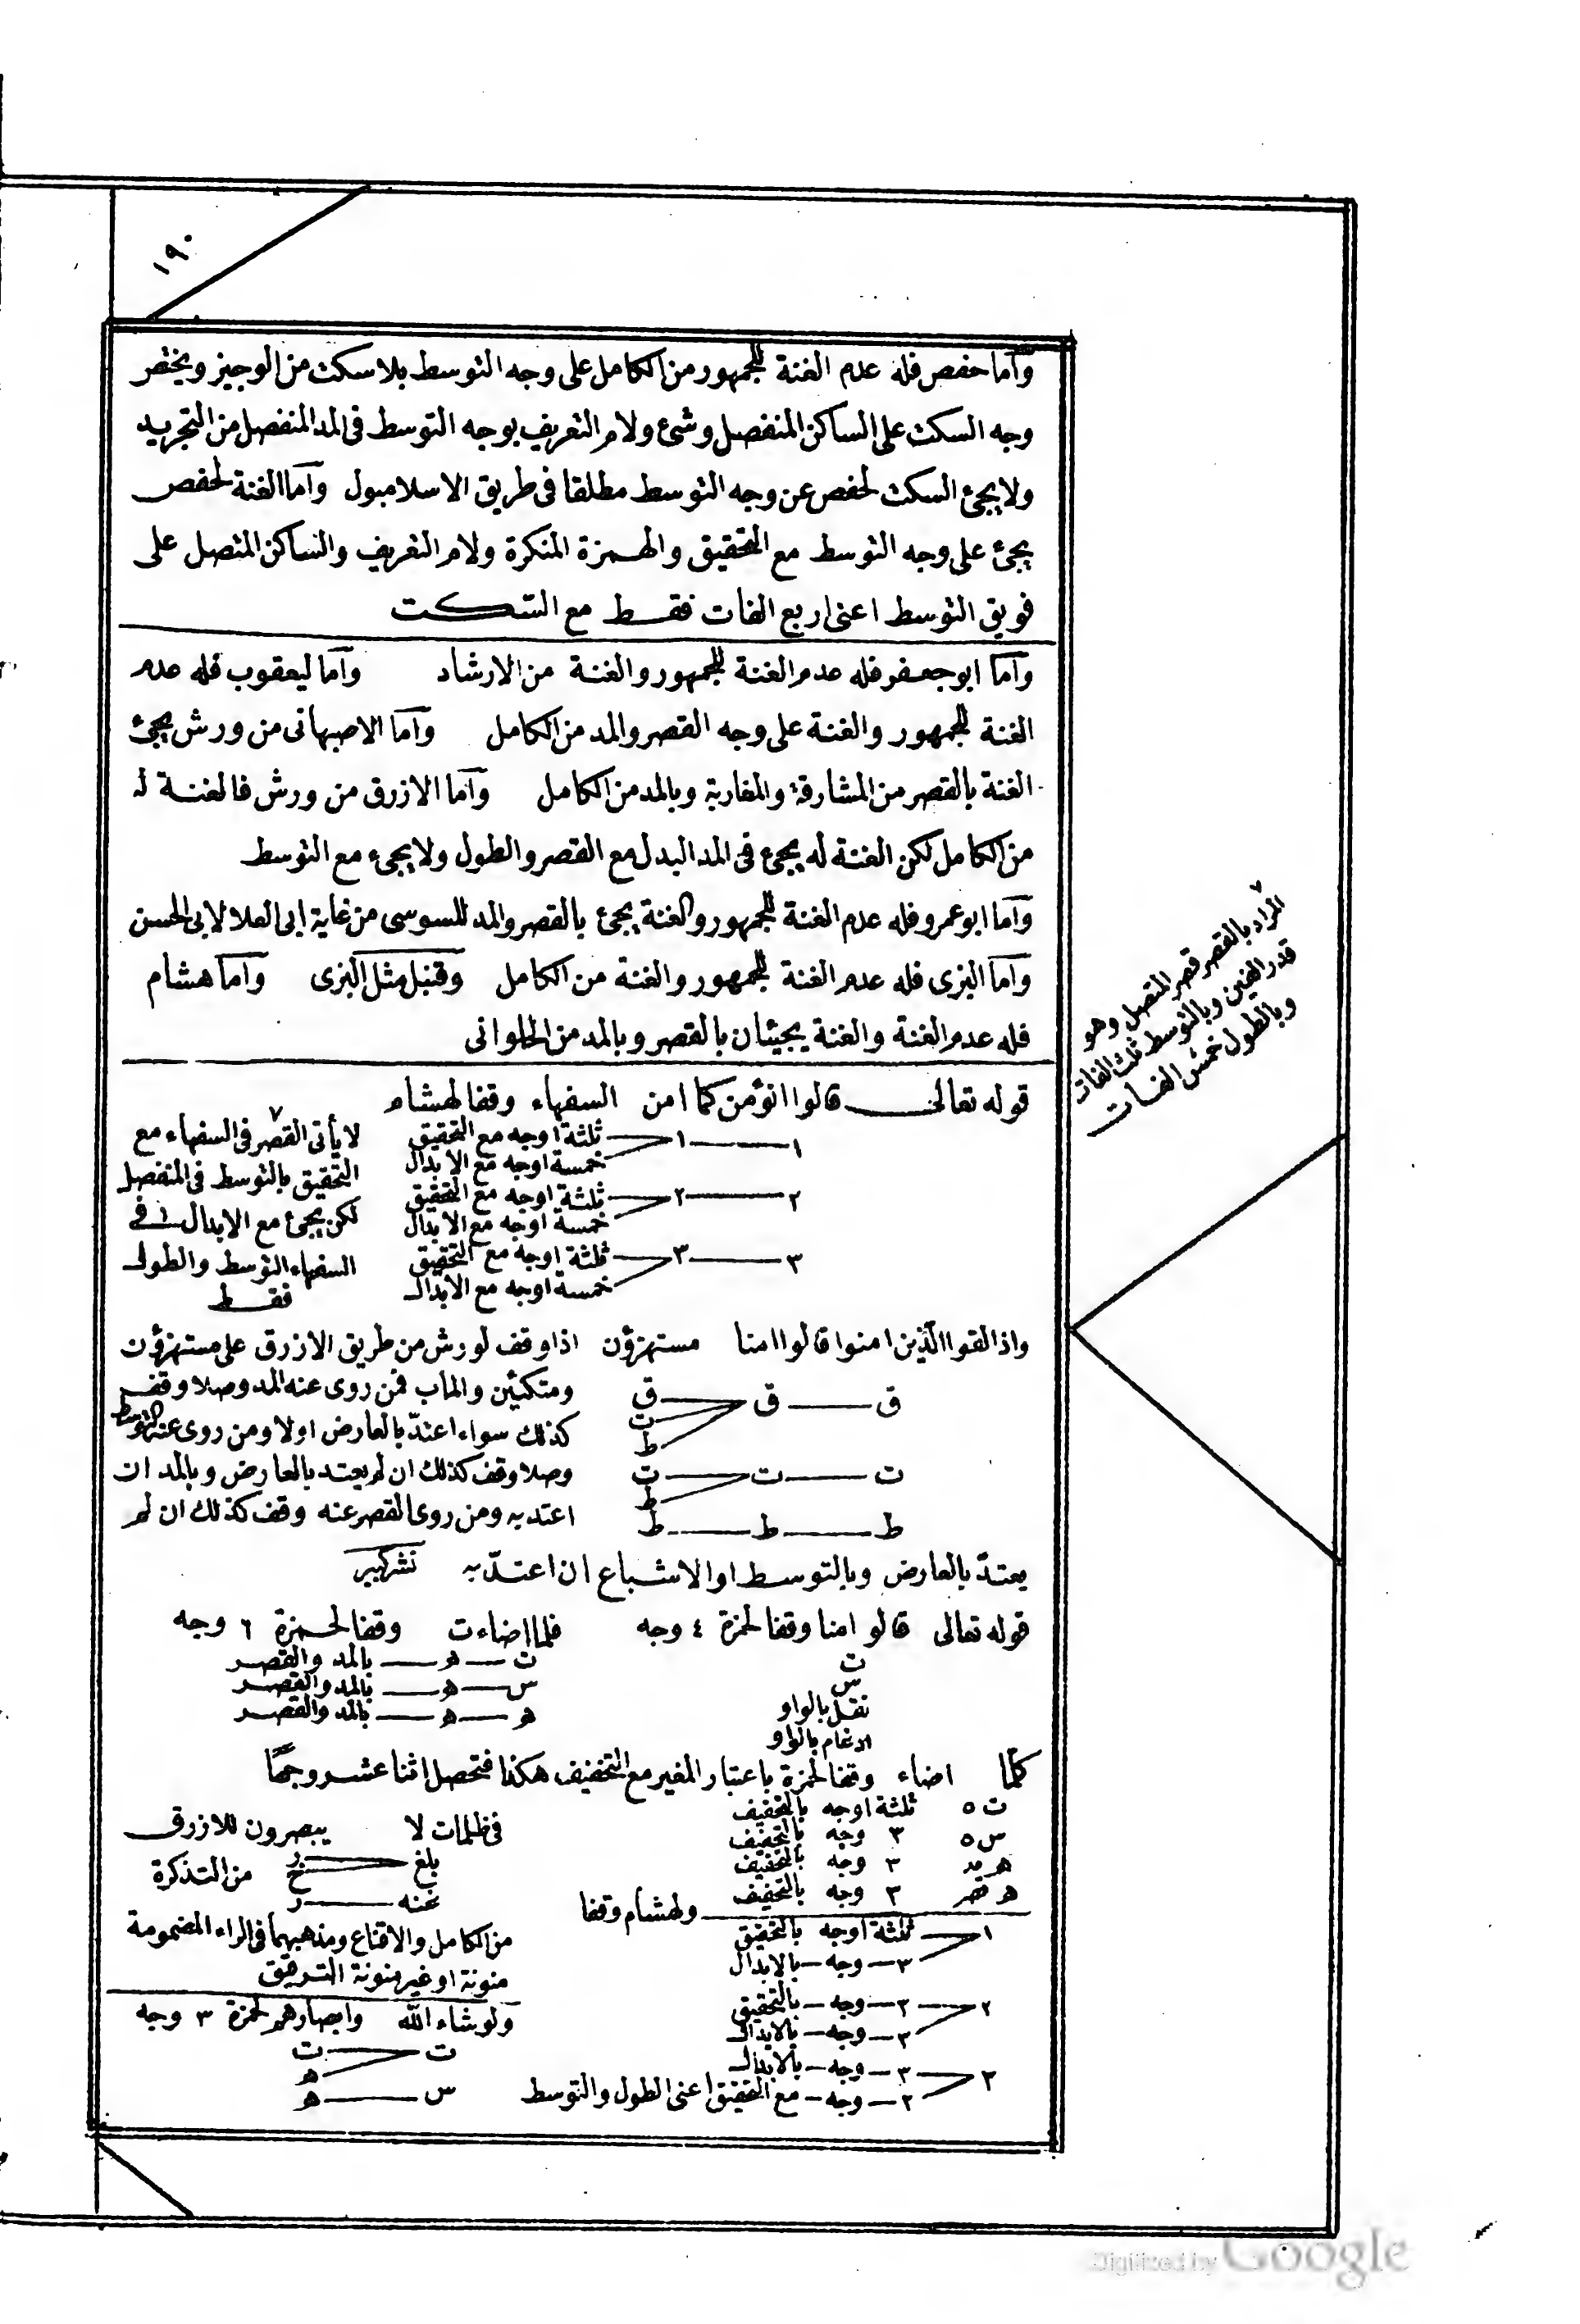 ١٩٠
وأما حفص فله عدم الغنة للجمهور من الكامل على وجه التوسط بلا سكت من الوجيز ويختص
وجه السكت على الساكن المنفصل وشئ ولام التعريف بوجه التوسط فى المد المنفصل من التجريد
ولا يجئ السكت لحفص عن وجه التوسط مطلقا فى طريق الاسلامبول وأما الغنة لحفص
يجئ على وجه التوسط مع التحقيق والهمزة المنكرة ولام التعريف والساكن المتصل على
فويق التوسط اعنى اربع الفات فقط مع السكت
وأما ابو جعفر فله عدم الغنة للجمهور والغنة من الارشاد وأما ليعقوب فله عدم
الغنة للجمهور والغنة على وجه القصر والمد من الكامل وأما الاصبهانى من ورش يجئ
الغنة بالقصر من المشارقة والمغاربة وبالمد من الكامل وأما الازرق من ورش فالغنة له
من الكامل لكن الغنة له يجئ فى المد البدل مع القصر والطول ولا يجىء مع التوسط
وأما ابو عمرو فله عدم الغنة للجمهور والغنة يجئ بالقصر والمد للسوسى من غاية ابى العلا لابى الحسن
وأما البزى فله عدم الغنة للجمهور والغنة من الكامل وقنبل مثل البزى وأما هشام
فله عدم الغنة والغنة يجيئان بالقصر وبالمد من الحلوانى
٧
المراد بالقصر قصر المتصل وهو
قدر الفين وبالتوسط ثلث الفات
وبالطول خمس الفات
قوله تعالى قالوا انؤمن كما امن السفهاء وقفا لهشام
١ ١ ثلثة اوجه مع التحقيق
خمسة اوجه مع الابدال
٢ ٢ ثلثة اوجه مع التحقيق
خمسة اوجه مع الابدال
٣ ٣ ثلثة اوجه مع التحقيق
خمسة اوجه مع الابدال
٧
لا يأتى القصر فى السفهاء مع
التحقيق بالتوسط فى المنفصل
لكن يجئ مع الابدال ١ فى
السفهاء التوسط والطول
فقط
واذا لقوا الّذين امنوا قالوا امنا مستهزؤن اذا وقف لورش من طريق الازرق على مستهزؤن
ق ق ق
ت
ط
ت ت ت
ط
ط ط ط
ومتكئين والماب فمن روى عنه المد وصلا وقف
كذلك سواء اعتدّ بالعارض اولا ومن روى عنه التوسط
وصلا وقف كذلك ان لم يعتد بالعارض وبالمد ان
اعتد به ومن روى القصر عنه وقف كذلك ان لم
يعتدّ بالعارض وبالتوسط او الاشباع ان اعتدّ به نشر كبير
قوله تعالى قالو امنا وقفا لحمزة ٤ وجه فلما اضاءت وقفا لحمزة ٦ وجه
ت
س
نقل بالواو
ادغام بالواو
ت ه بالمد والقصر
س ه بالمد والقصر
ه ه بالمد والقصر
كلّما اضاء وقفا لحمزة باعتبار المغير مع التخفيف هكذا فتحصل اثنا عشر وجهًا
ت ٥ ثلثة اوجه بالتخفيف
س ٥ ٣ وجه بالتخفيف
ه مد ٣ وجه بالتخفيف
ه قصر ٣ وجه بالتخفيف
ولهشام وقفا
١ ثلثة اوجه بالتحقيق
٣ وجه بالابدال
٢ ٢ وجه بالتحقيق
٣ وجه بالابدال
٢ ٣ وجه بالابدال
٢ وجه مع التحقيق اعنى الطول والتوسط
فى ظلمات لا يبصرون للازرق
بلغ ر
خ من التذكرة
غنه ر
من الكامل والاقناع ومذهبهما فى الراء المضمومة
منونة او غير منونة الترقيق
ولو شاء الله وابصارهم لحمزة ٣ وجه
ت ت
ه
س ه
Digitized by Google